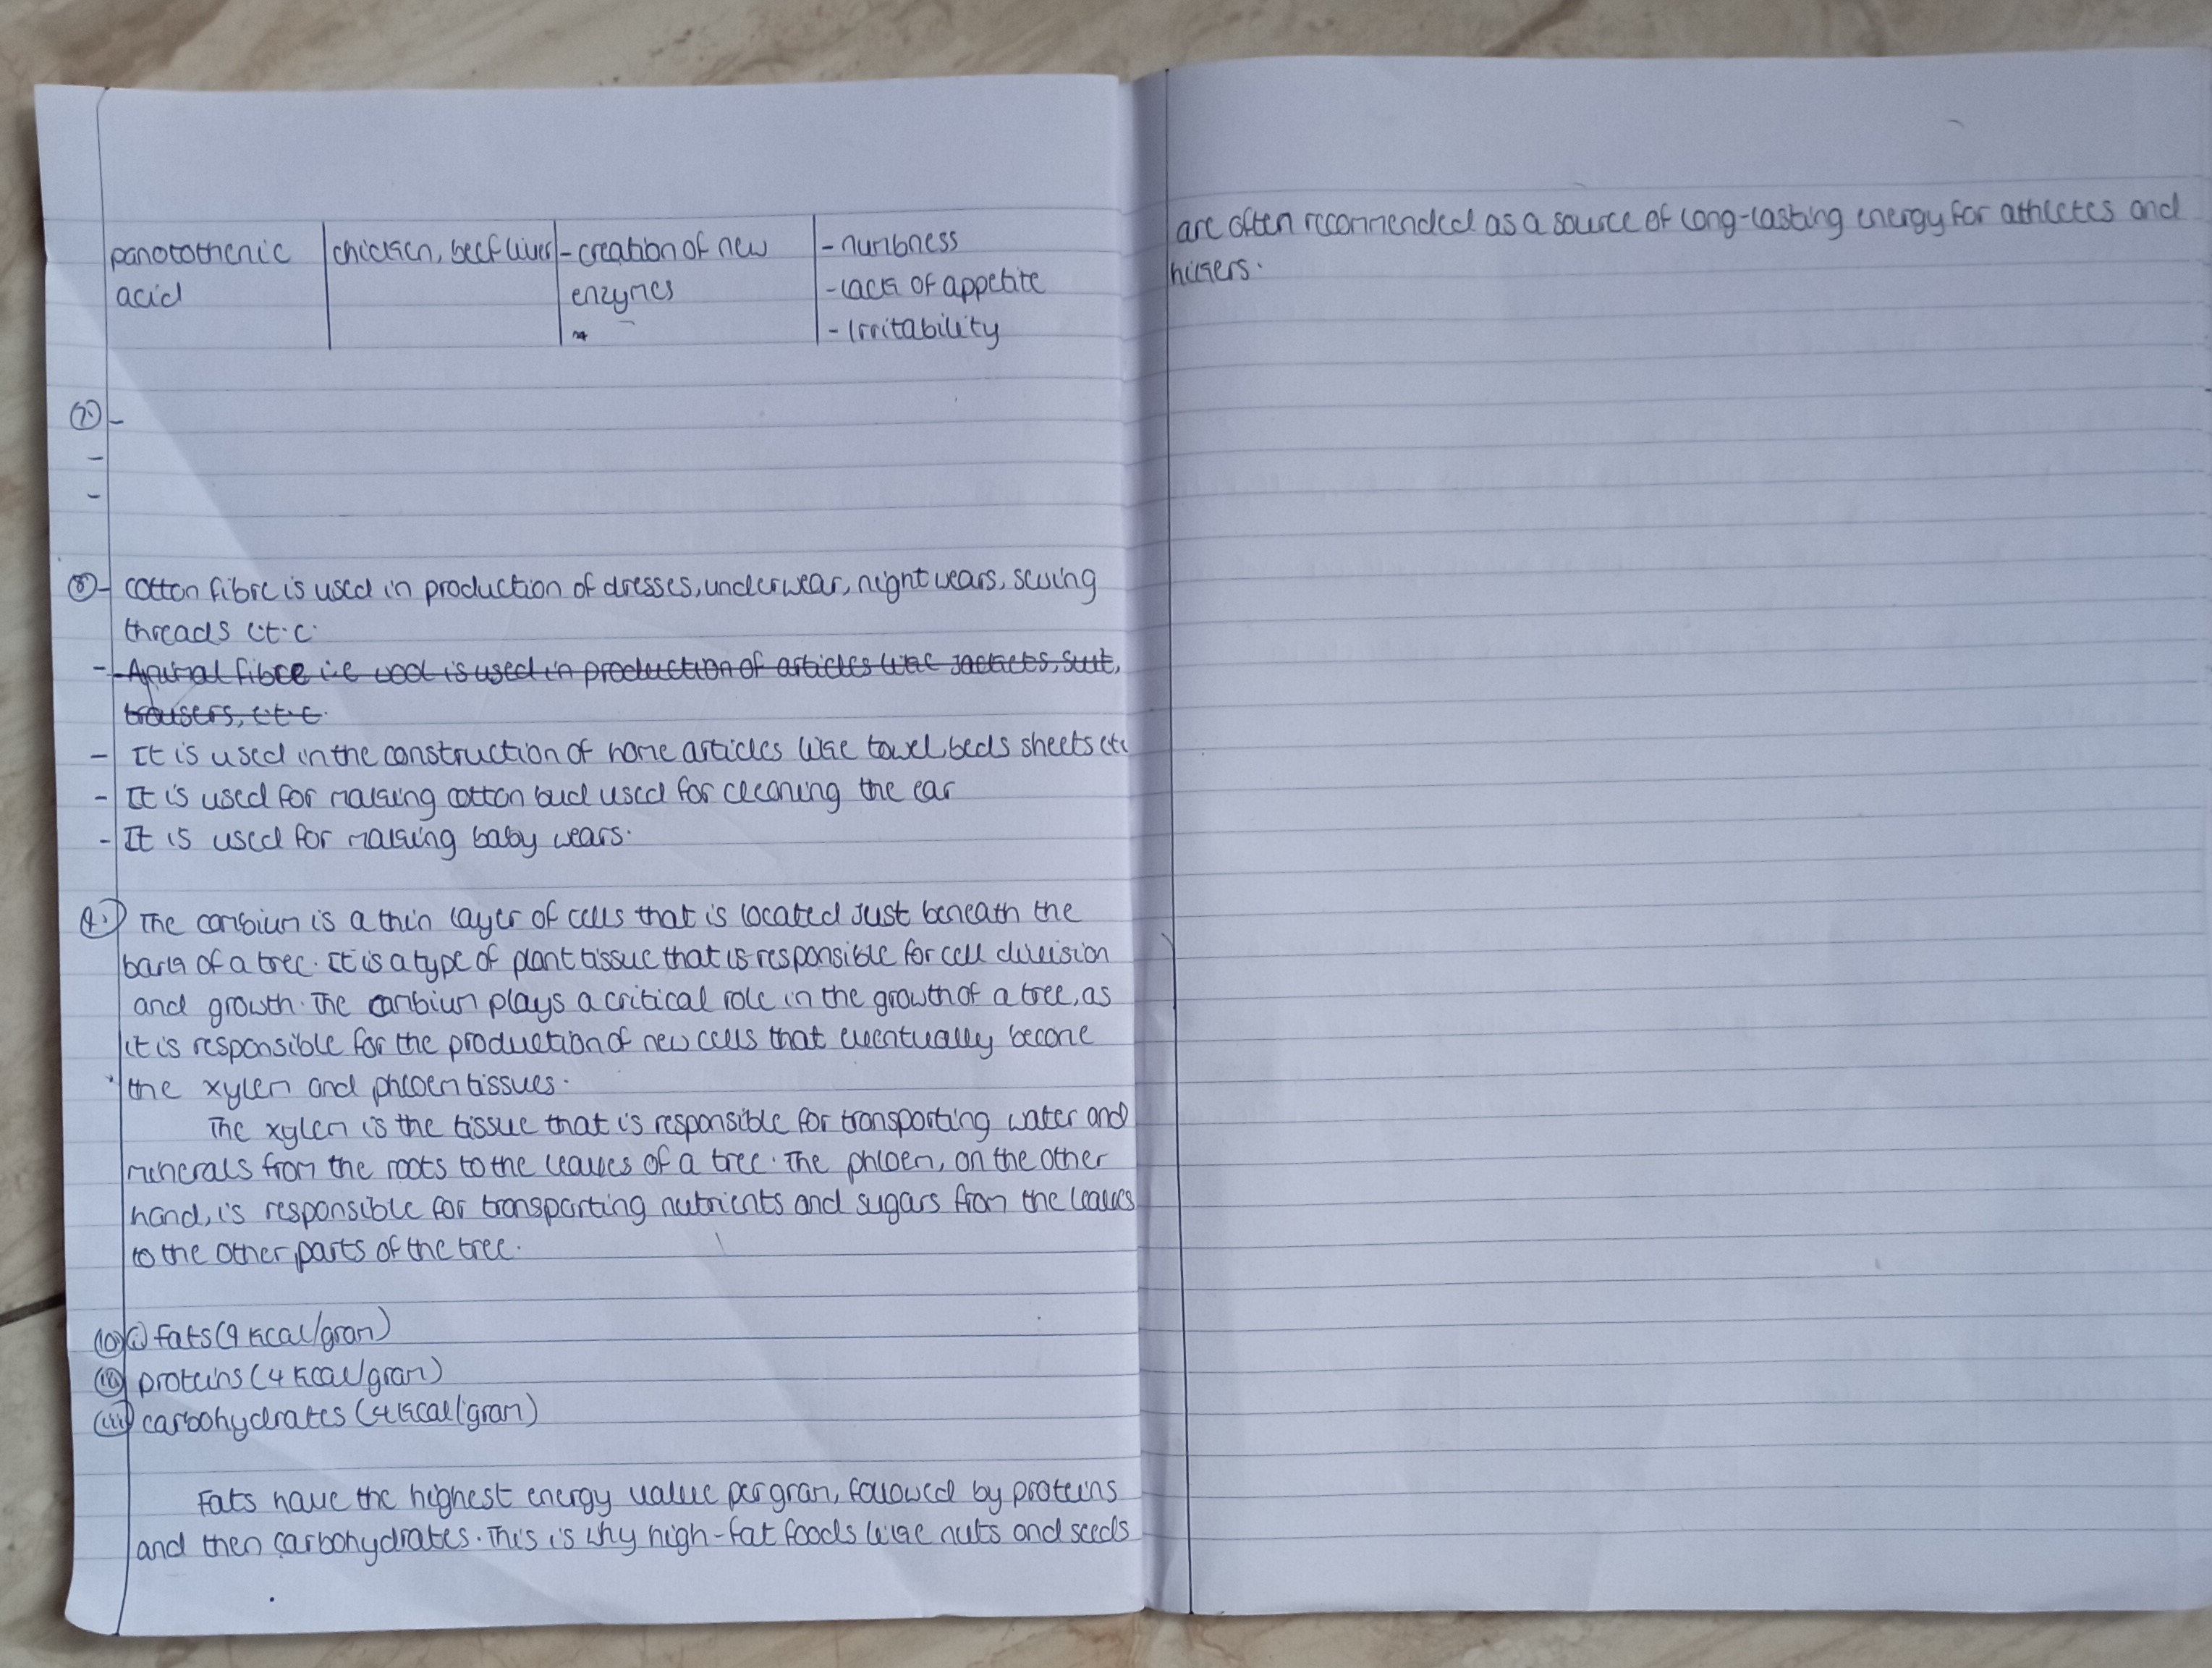 panotothenic | chicken, beef liver | - creation of new | - numbness
acid | enzymes | - lack of appetite
- Irritability
7. -
-
-
8 - cotton fibre is used in production of dresses, underwear, night wears, sewing
threads e.t.c.
- Animal fibre i.e wool is used in production of articles like Jackets, suit,
trousers, e.t.c.
- It is used in the construction of home articles like towel, beds sheets etc
- It is used for making cotton bud used for cleaning the ear
- It is used for making baby wears.
9. The cambium is a thin layer of cells that is located Just beneath the
bark of a tree. It is a type of plant tissue that is responsible for cell division
and growth. The cambium plays a critical role in the growth of a tree, as
it is responsible for the production of new cells that eventually become
the xylem and phloem tissues.
The xylem is the tissue that is responsible for transporting water and
minerals from the roots to the leaves of a tree. The phloem, on the other
hand, is responsible for transporting nutrients and sugars from the leaves
to the other parts of the tree.
(10) (i) fats (9 kcal/gram)
(ii) proteins (4 kcal/gram)
(iii) carbohydrates (4 kcal/gram)
Fats have the highest energy value per gram, followed by proteins
and then carbohydrates. This is why high-fat foods like nuts and seeds
are often recommended as a source of long-lasting energy for athletes and
hikers.